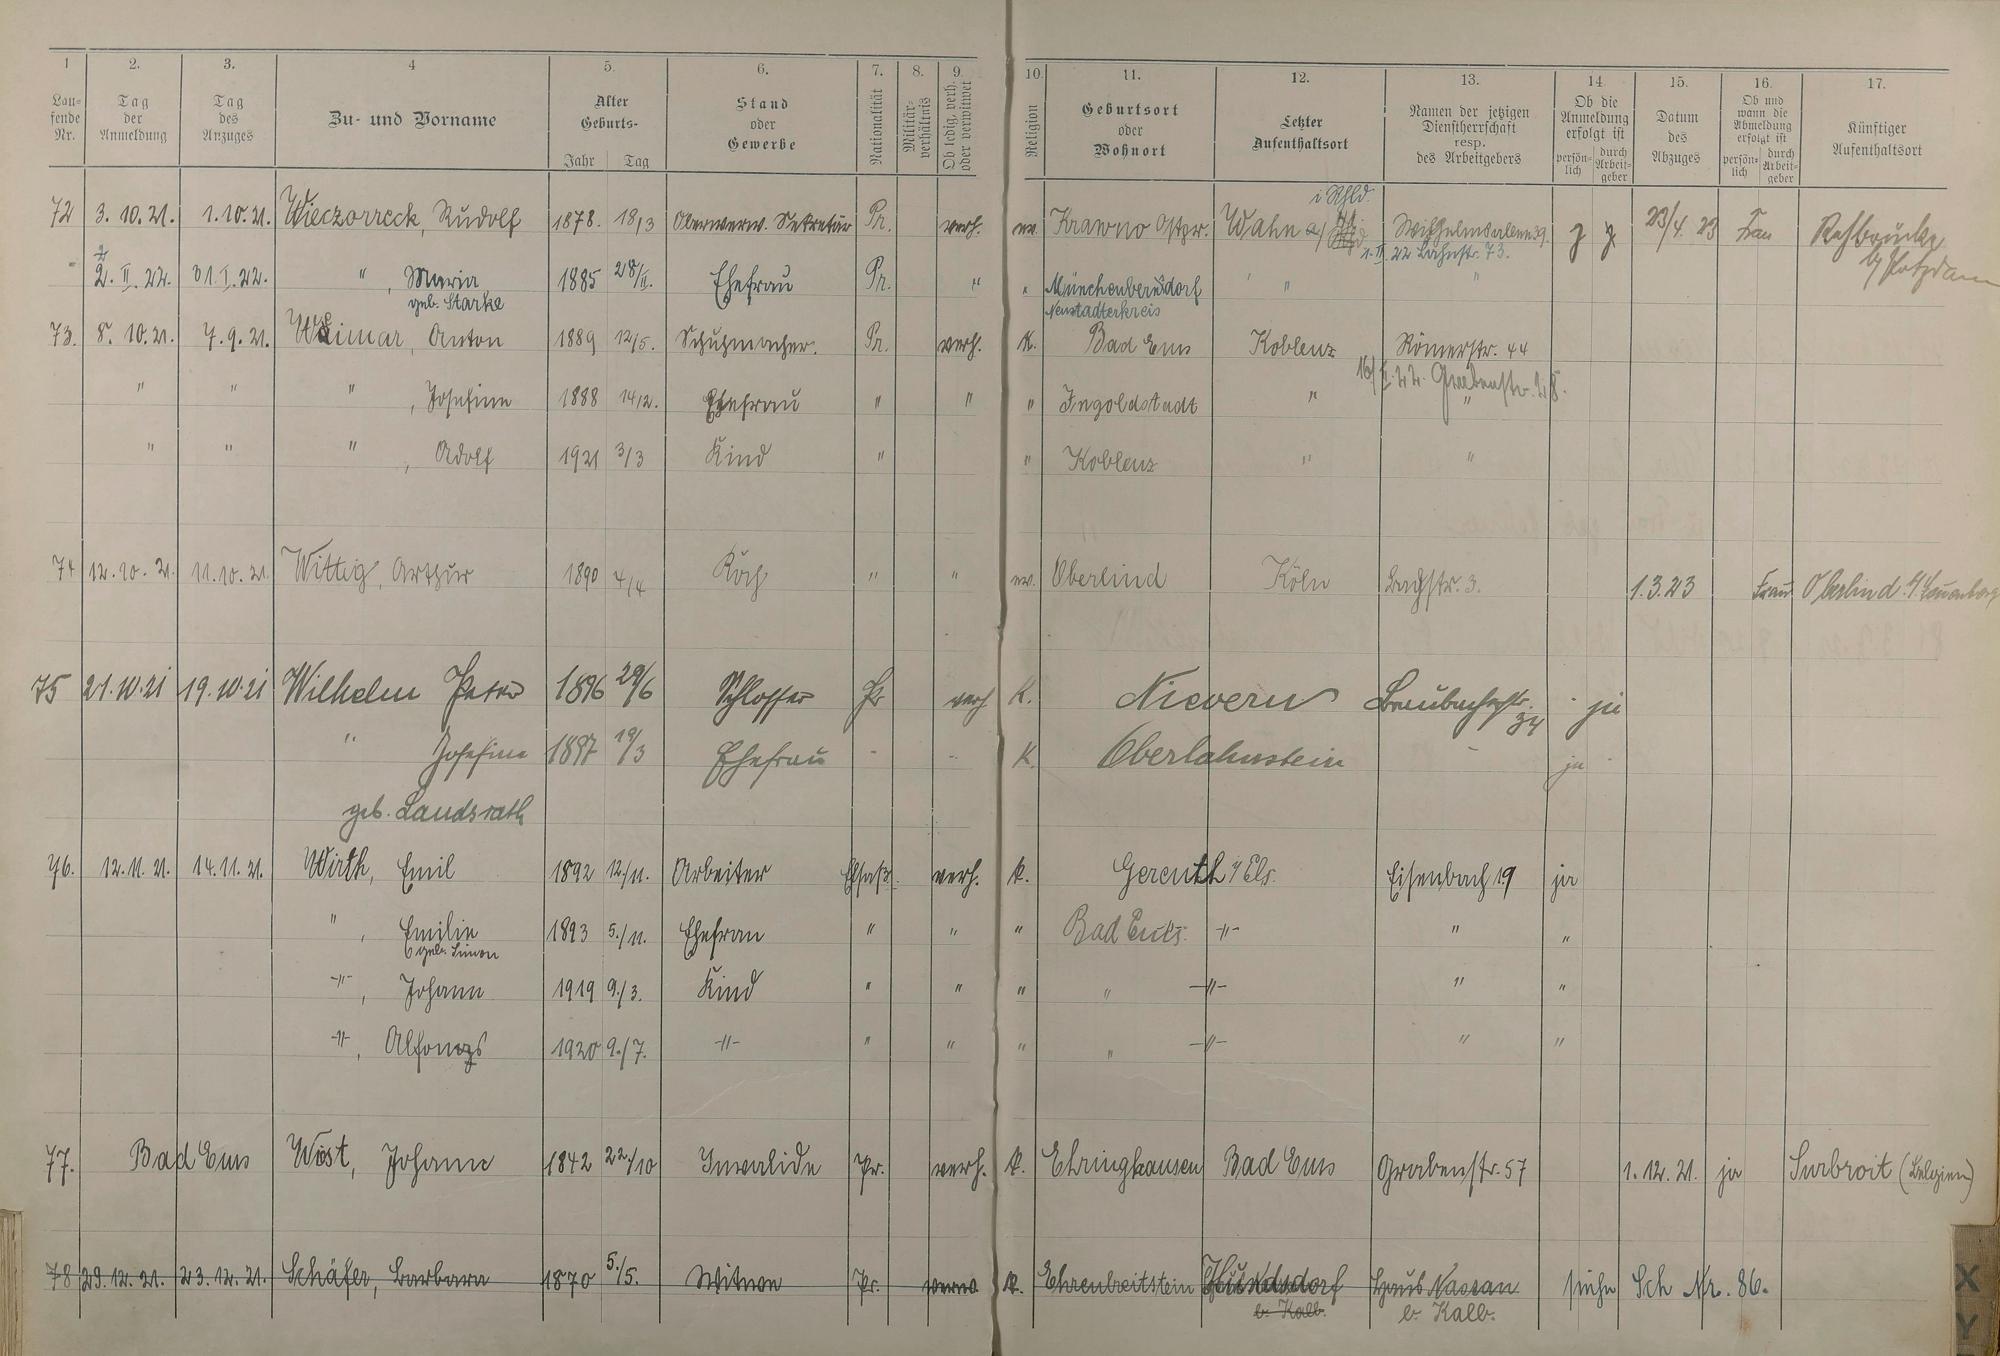 1 2. 3. 4 5. 6. 7. 8. 9. 10. 11. 12. 13. 14. 15. 16. 17.
Lau-
fende
Nr.
Tag
der
Anmeldung
Tag
des
Anzuges
Zu- und Vorname
Alter
Geburts-
Jahr Tag
Stand
oder
Gewerbe
Nationalität
Militär-
verhältnis
Ob ledig, verh.
oder verwitwet
Religion
Geburtsort
oder
Wohnort
Letzter
Aufenthaltsort
Namen der jetzigen
Dienstherrschaft
resp.
des Arbeitgebers
Ob die
Anmeldung
erfolgt ist
persön-
lich
durch
Arbeit-
geber
Datum
des
Abzuges
Ob und
wann die
Abmeldung
erfolgt ist
persön-
lich
durch
Arbeit-
geber
Künftiger
Aufenthaltsort
72 3. 10. 21. 1. 10. 21. Wieczorreck, Rudolf 1878. 18/3 Oberwerw. Sekretär Pr. verh. ev. Krawno Ostpr. Wahn Wilhelmsallee 39. 23/4. 23 Frau Rehbrücke
1. II. 22 Lahnstr. 73. b/ Potzdam
2. II. 22. 31. I. 22. " , Maria 1885 28/II. Ehefrau Pr. " " Münchenbernsdorf " "
geb. Starke Neustadterkreis
73. 8. 10. 21. 7. 9. 21. Weimar, Anton 1889 12/5. Schuhmacher. Pr. verh. K. Bad Ems Koblenz Römerstr. 44
16/II. 22. Grabenstr. 28.
" " " , Josefine 1888 14/2. Ehefrau " " " Ingoldstadt " "
" " " , Adolf 1921 3/3 Kind " " Koblenz " "
74 12. 10. 21. 11. 10. 21 Wittig, Arthur 1890 4/4 Koch " " ev. Oberlind Köln Bachstr. 3. 1. 3. 23 Frau Oberlind
75 21. 10. 21 19. 10. 21 Wilhelm Peter 1896 29/6 Schlosser Pr verh K. Nievern Braubacherstr. 34 ja
" Josefine 1897 19/3 Ehefrau - - K. Oberlahnstein - ja
geb. Landsrath
76. 12. 11. 21. 14. 11. 21. Wirth, Emil 1892 12./11. Arbeiter Elsaß. verh. k. Gereuth i/ Els. Eisenbach 19 ja
" , Emilie 1893 5./11. Ehefrau " " " Bad Ems. -"- " "
geb. Simon
-"- , Johann 1919 9./3. Kind " " " " -"- " "
-"- , Alfons 1920 9./7. -"- " " " " -"- " "
77. Bad Ems Wüst, Johann 1842 22./10 Invalide Pr. verh. k. Ehringhausen Bad Ems Grabenstr. 57 1. 12. 21. ja Surbroit (Belgien)
78 29. 12. 21. 23. 12. 21. Schäfer, Barbara 1870 5./5. Witwe Pr. verw. k. Ehrenbreitstein Hundsdorf Haus Nassau siehe Sch Nr. 86.
b. Kalb. b. Kalb.
X
Y